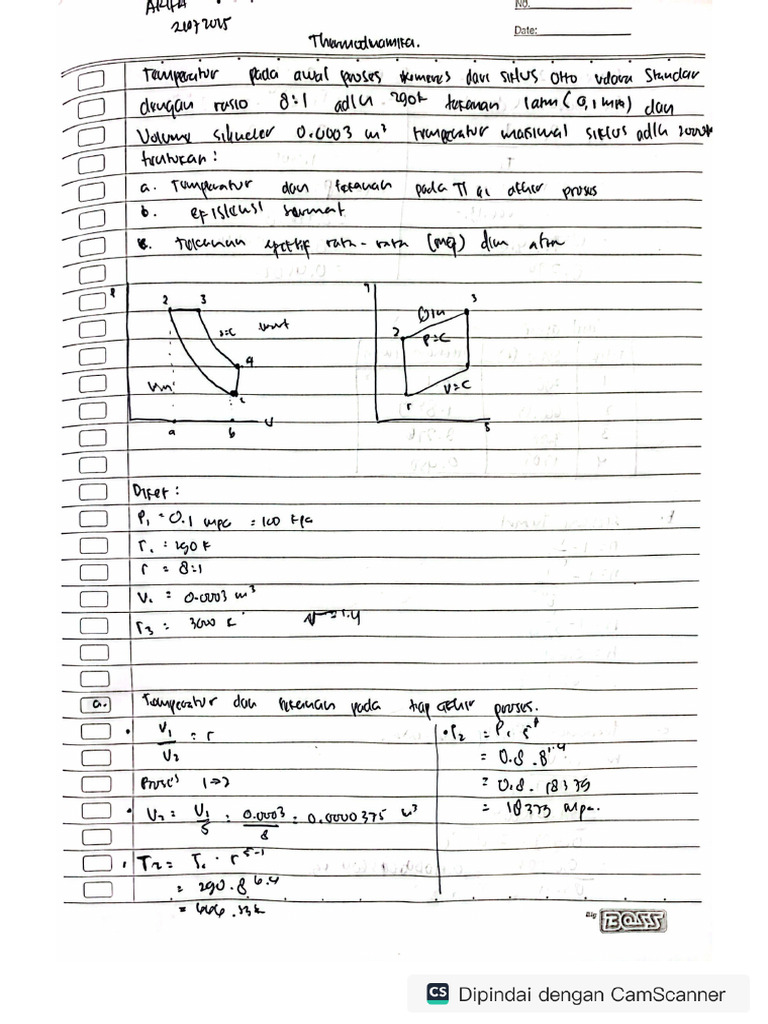 No.
21072025
Date:
Thermodinamika.
Temperatur pada awal proses kompresi dari siklus Otto udara Standar
dengan rasio 8:1 adlh 290k tekanan 1atm (0,1 mpa) dan
Volume silinder 0.0003 m³ temperatur maksimal siklus adlh 2000k
tentukan :
a. Temperatur dan tekanan pada akhir proses
b. efisiensi termal
c. Tekanan efektif rata-rata (mep) dlm atm
P
2 3
s=c
4
a b v
3
Qin
2
P=C
V=C
1
s
Diket :
P₁ = 0.1 mpa = 100 kpa
T₁ = 290 k
r = 8:1
V₁ = 0.0003 m³
T₃ = 3000 k = 1.4
a. Temperatur dan tekanan pada tiap akhir proses.
• V₁/V₂ = r
Proses 1→2
• V₂ = V₁/5 = 0.0003/8 = 0.0000375 m³
• T₂ = T₁ . r
= 290 . 8
= 666 . k
• P₂ = P₁
= 0.8 . 8
= 0.8 . 18379
= 18379 Mpa.
Big BOSS
CS Dipindai dengan CamScanner